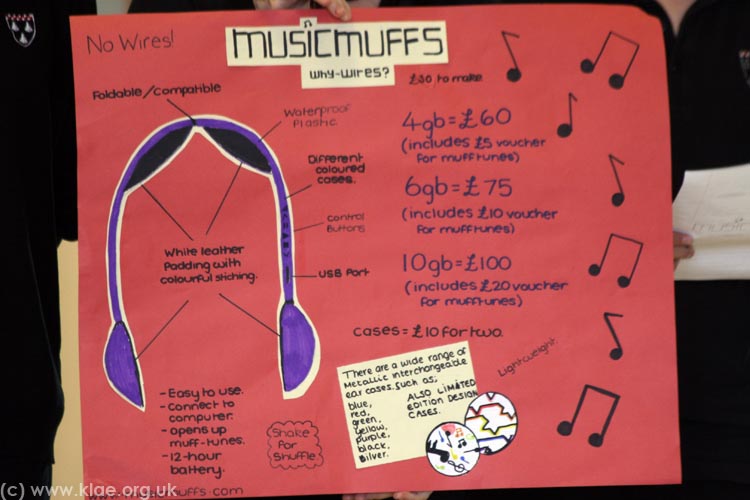 No Wires!
MUSICMUFFS
WHY-WIRES?
£30 to make
Foldable/compatible
Waterproof
Plastic
Different
coloured
cases.
Control
Buttons
USB Port
White leather
Padding with
colourful stiching.
4gb=£60
(includes £5 voucher
for mufftunes)
6gb=£75
(includes £10 voucher
for mufftunes)
10gb=£100
(includes £20 voucher
for mufftunes)
cases=£10 for two.
Lightweight.
There are a wide range of
Metallic interchangeable
ear cases such as;
blue,
red,
green,
yellow,
purple,
black,
silver.
ALSO LIMITED
EDITION DESIGN
CASES.
-Easy to use.
-Connect to
computer.
-opens up
muff-tunes.
-12-hour
battery.
Shake
for
Shuffle
uffs.com
(c) www.klae.org.uk